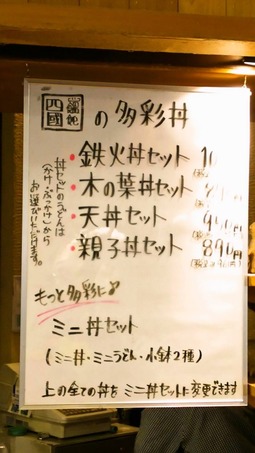 四國
の多彩丼
・鉄火丼セット
・木の葉丼セット
・天丼セット
・親子丼セット 890円
丼セットのうどんは
(かけ・ぶっかけ)から
お選びいただけます。
もっと多彩に
ミニ丼セット
(ミニ丼・ミニうどん・小鉢2種)
上の全ての丼をミニ丼セットに変更できます